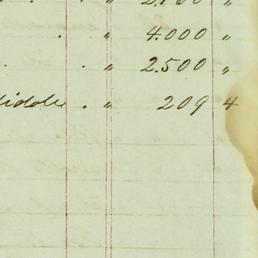 . . " 2.100 "
. " 4.000 "
. . " 2.500 "
iddle . " 209 4